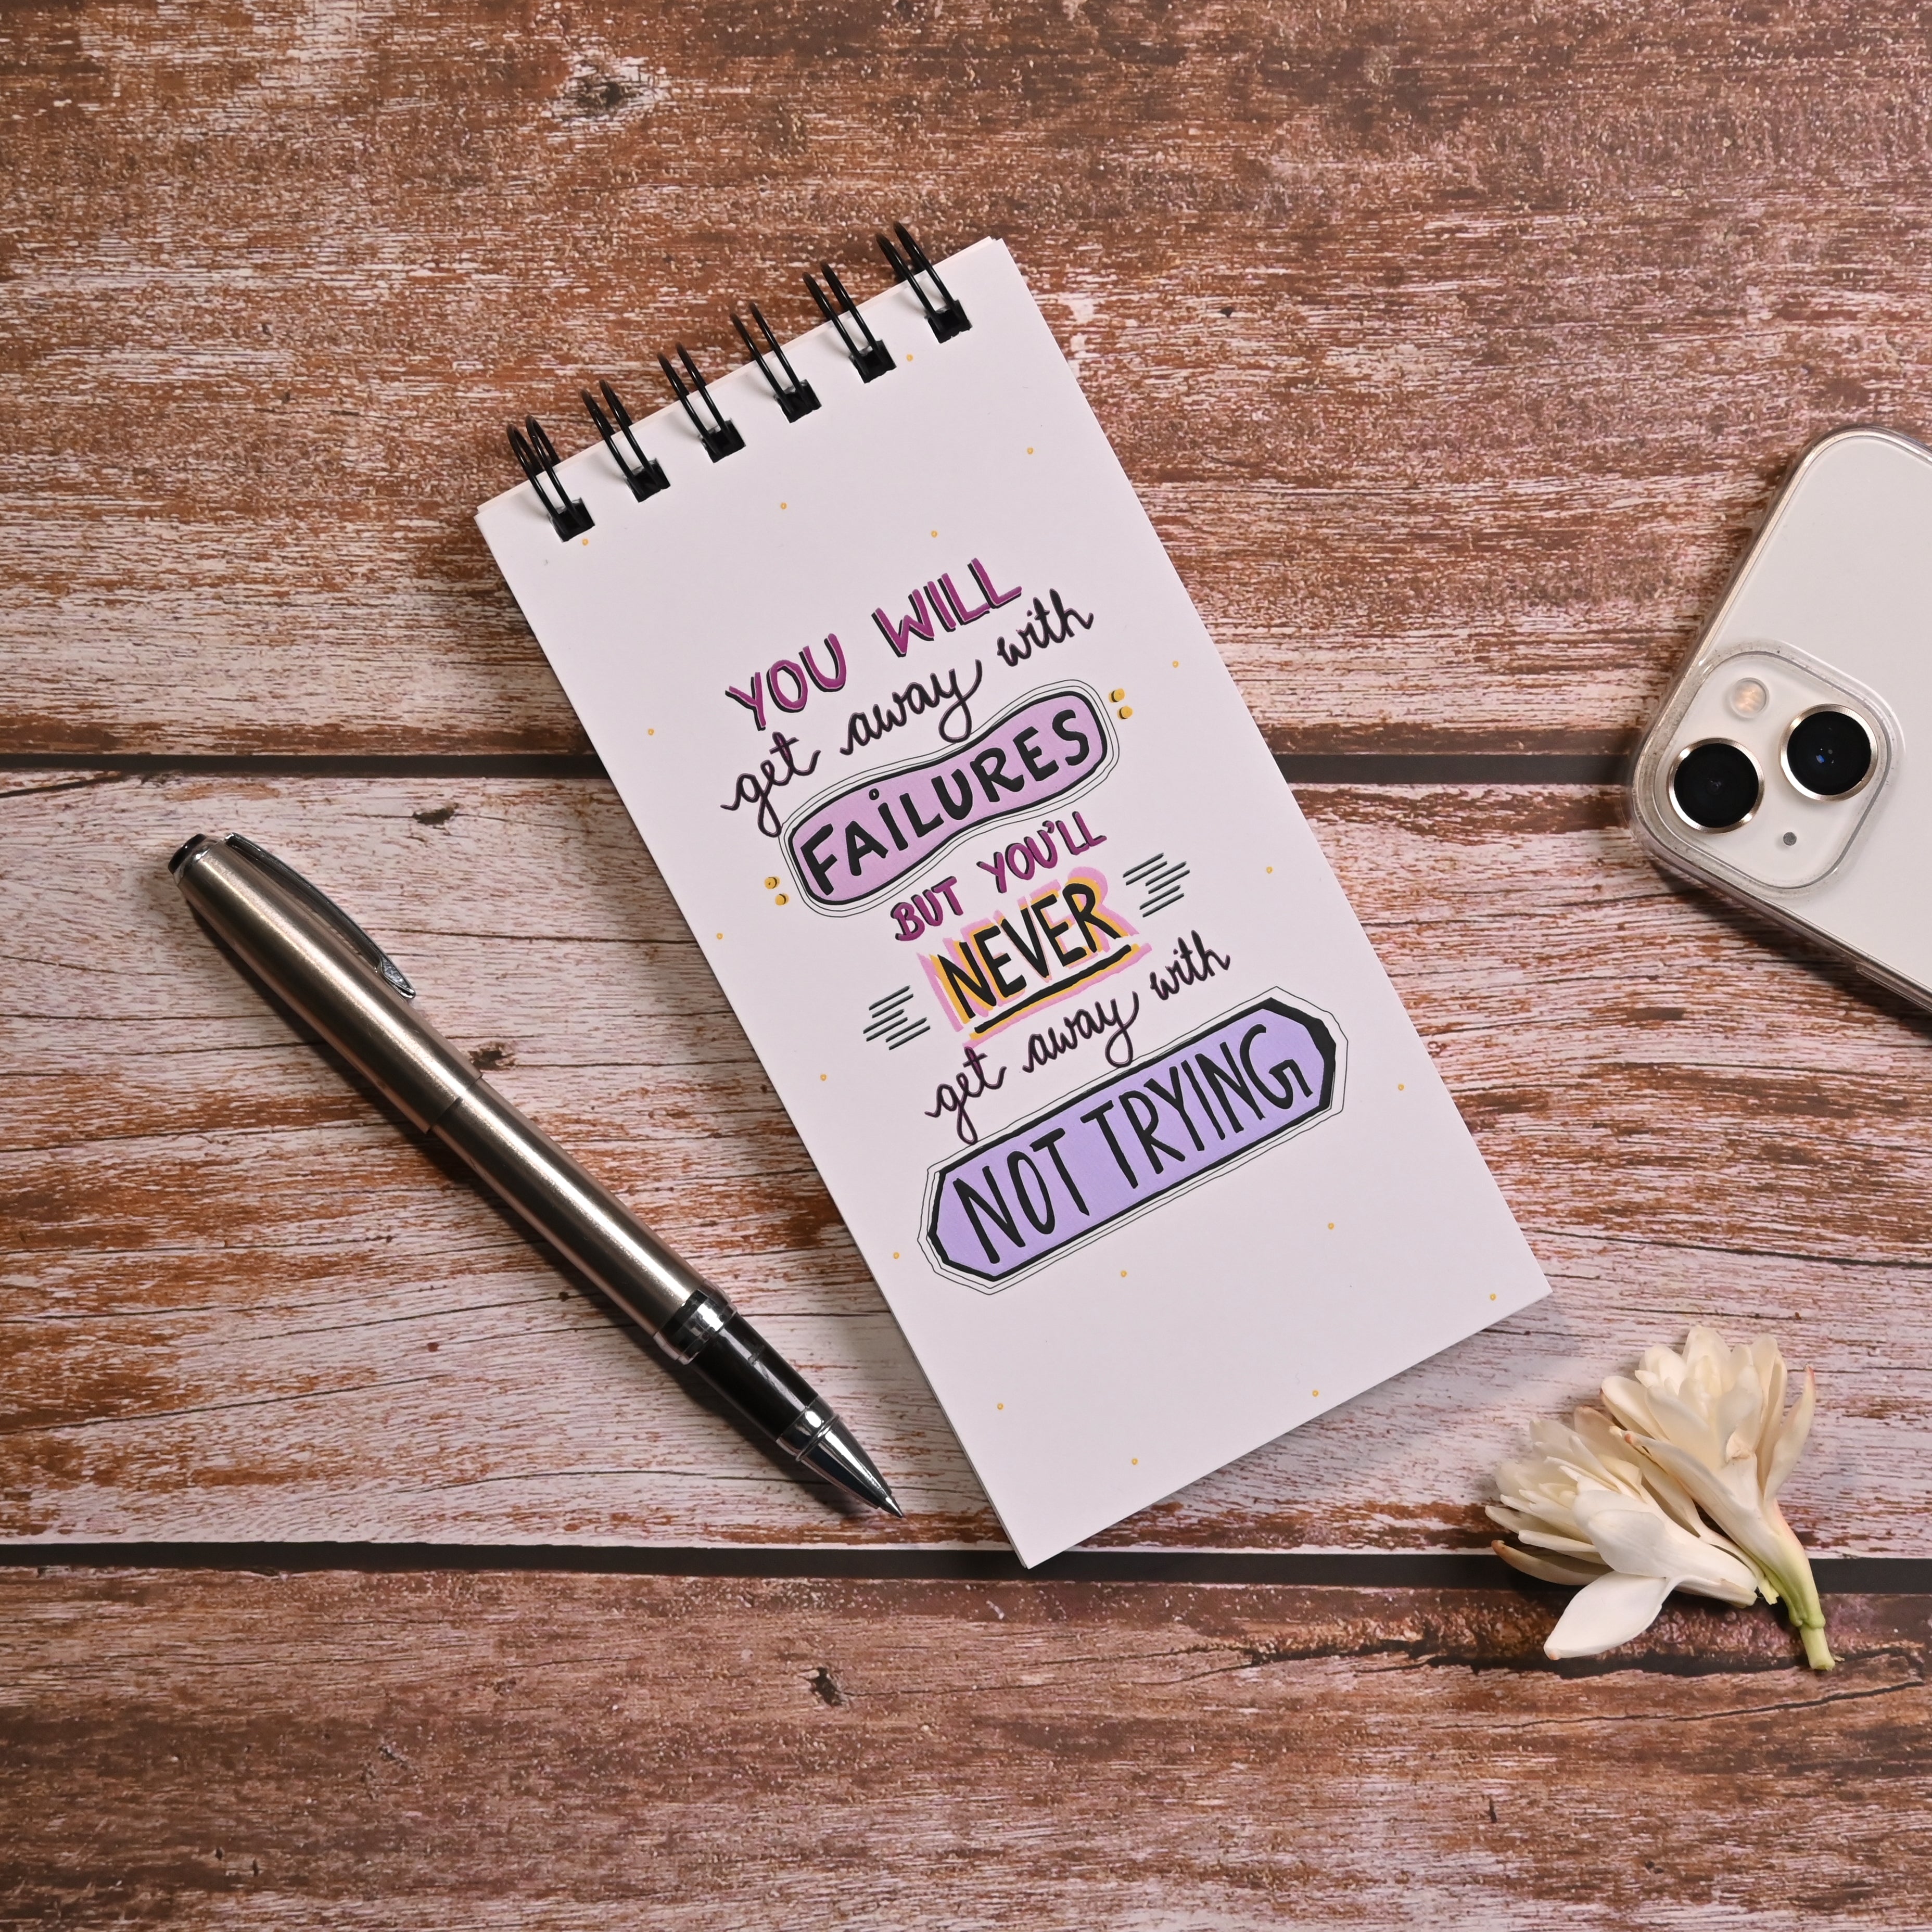 YOU WILL
get away with
FAiLURES
BUT YOU'LL
NEVER
get away with
NOT TRYING